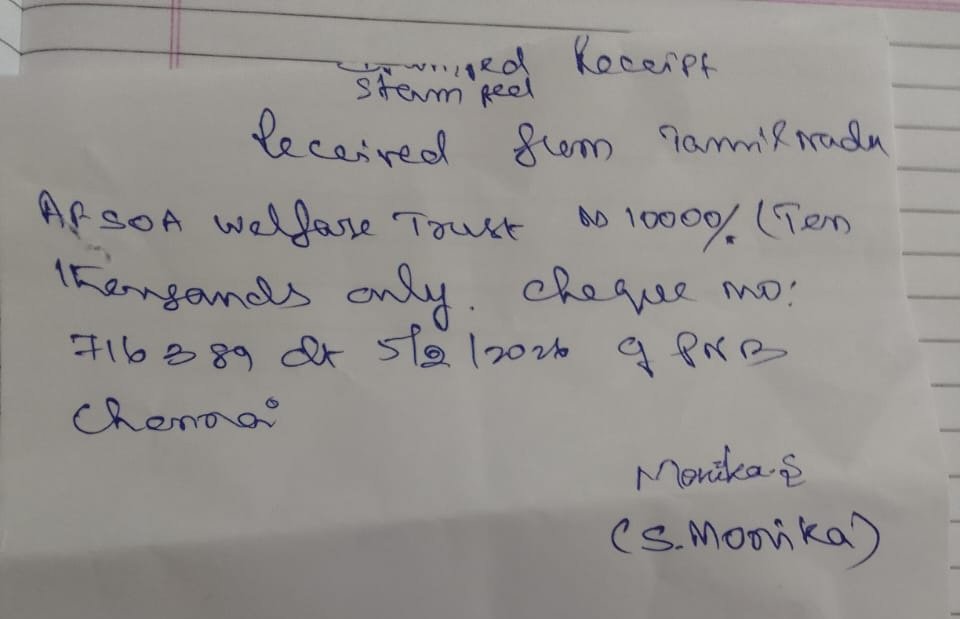 Receipt
Stampeed
Received from Tamilnadu
AFSOA Welfare Trust Rs 10000/. (Ten
Thousands only. cheque no:
716389 dt 5/2/2026 of PNB
Chennai
Monika.S
(S.Monika)